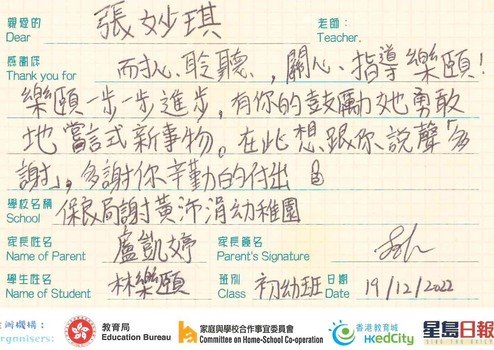 親愛的 張妙琪 老師：
Dear Teacher.
感謝您 而扖心、聆聽、關心、指導樂頤！
Thank you for
樂頤一步一步進步，有你的鼓勵她勇敢
地嘗試新事物。在此想跟你說聲「多
謝」，多謝你辛勤的付出
學校名稱 保良局謝黃沛涓幼稚園
School
家長姓名 盧凱婷 家長簽名
Name of Parent Parent's Signature
學生姓名 林樂頤 班別 初幼班 日期 19/12/2022
Name of Student Class Date
主辦機構：
Organisers:
教育局
Education Bureau
家庭與學校合作事宜委員會
Committee on Home-School Co-operation
香港教育城
HKedCity
星島日報
SING TAO DAILY